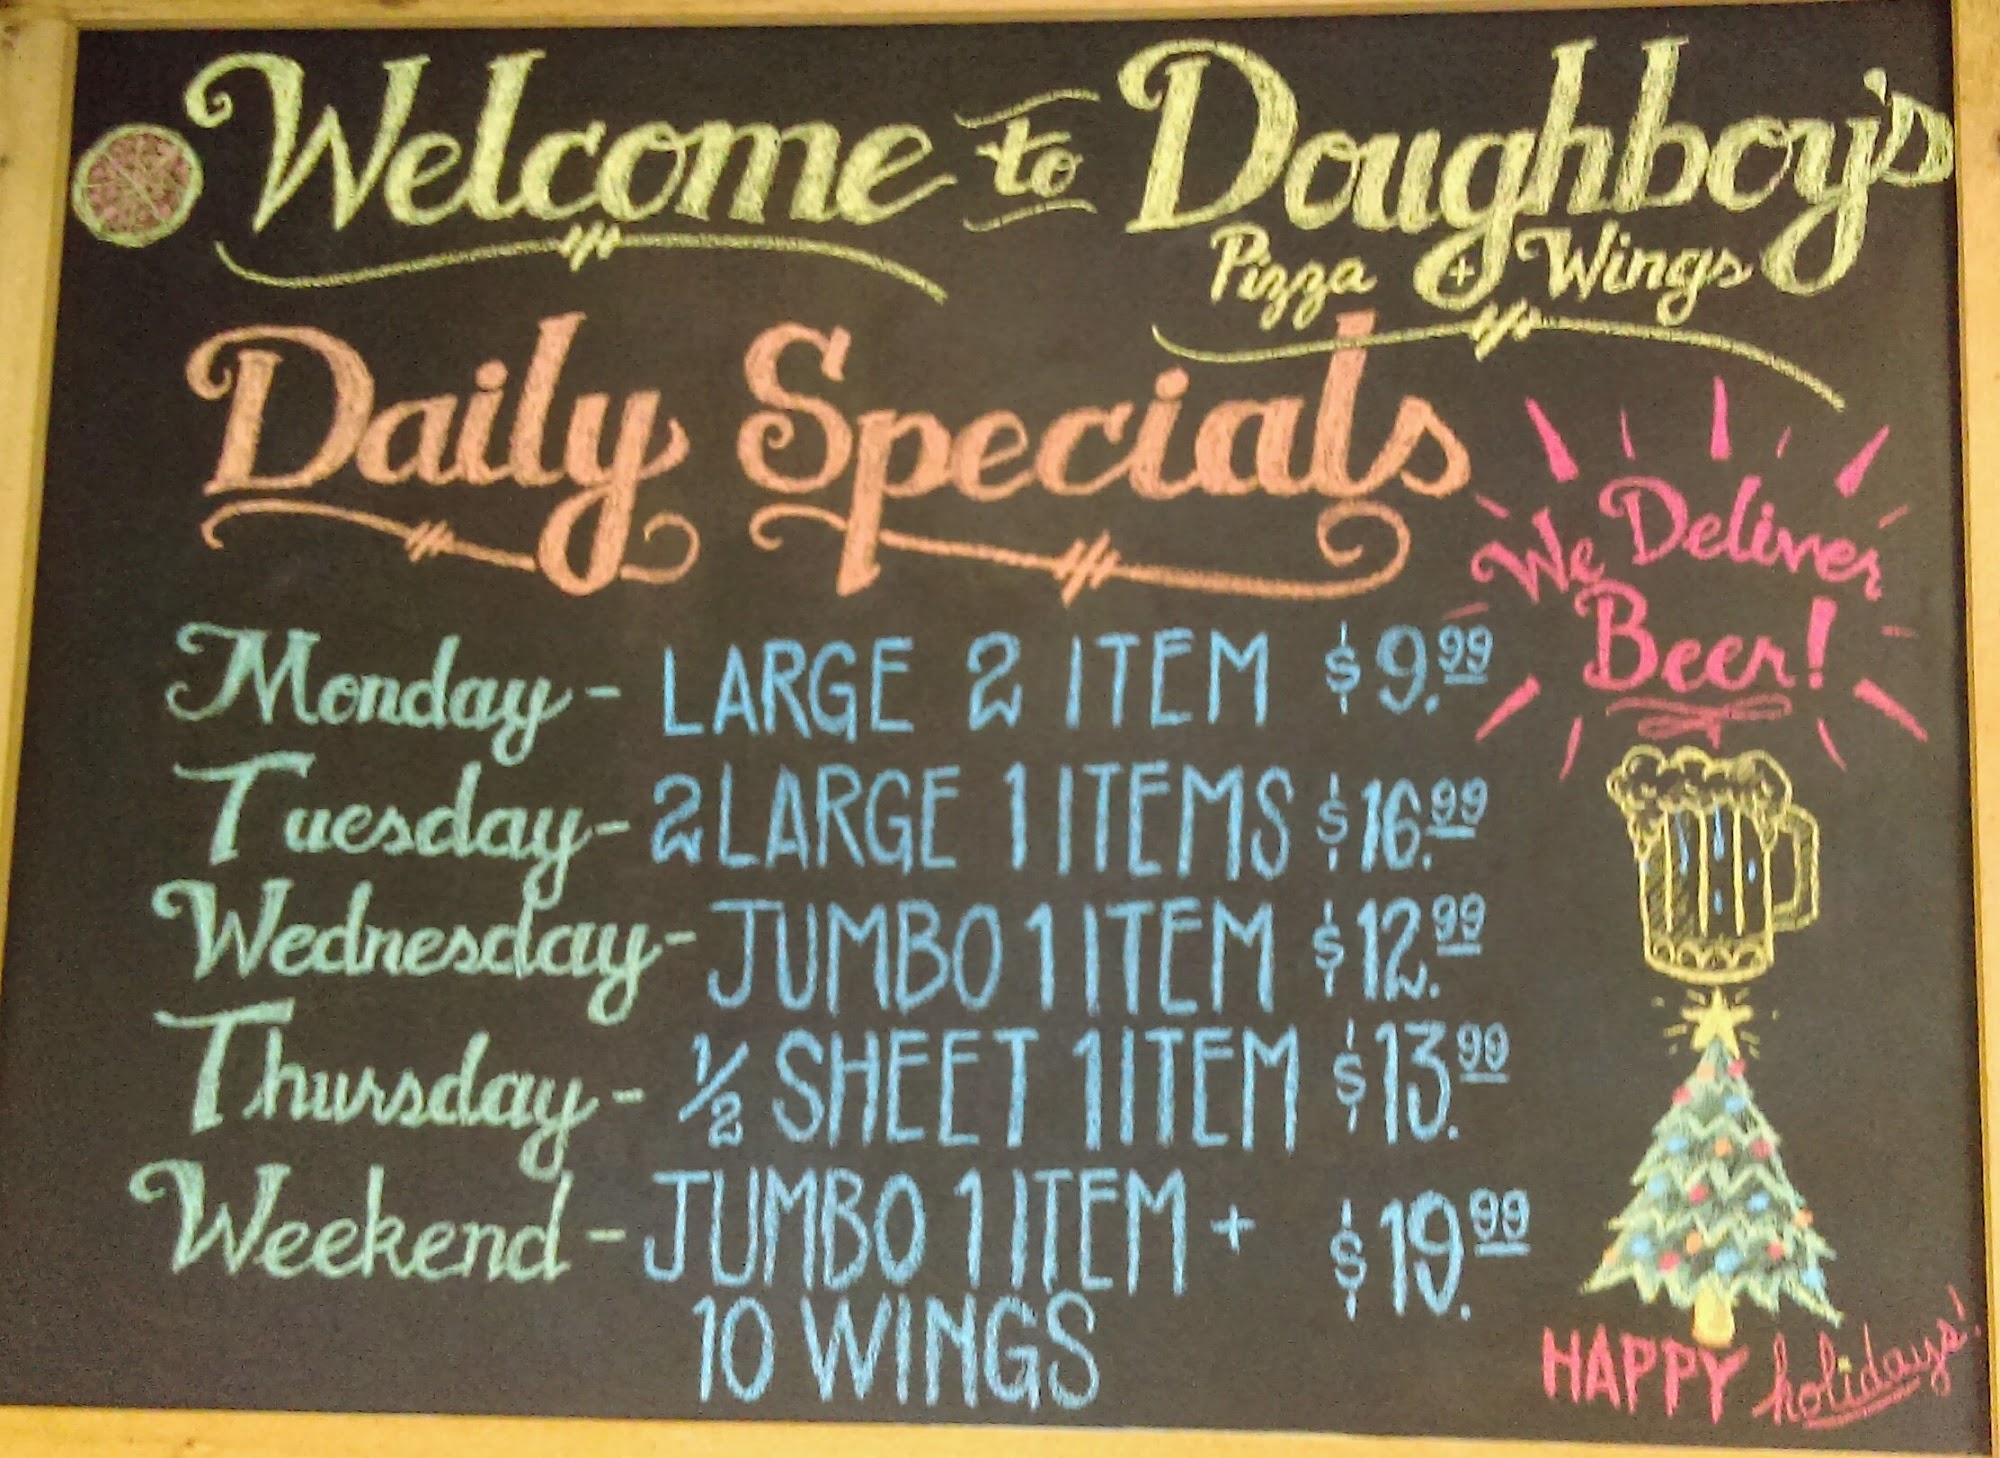 Welcome to Doughboy's
Pizza + Wings
Daily Specials
We Deliver
Beer!
Monday - LARGE 2 ITEM $9.99
Tuesday - 2 LARGE 1 ITEMS $16.99
Wednesday - JUMBO 1 ITEM $12.99
Thursday - 1/2 SHEET 1 ITEM $13.99
Weekend - JUMBO 1 ITEM + $19.99
10 WINGS
HAPPY holidays!